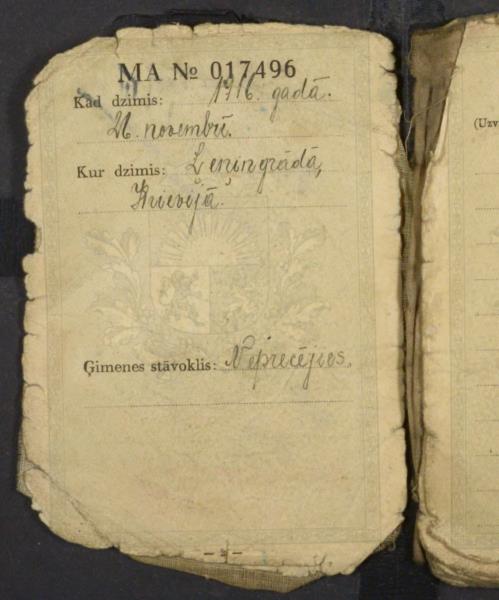 MA № 017496
Kad dzimis: 1916. gadā.
novembrī.
Kur dzimis: Ļeņingrādā,
Krievijā.
Ģimenes stāvoklis: Neprecējies.
— 2 —
(Uzv